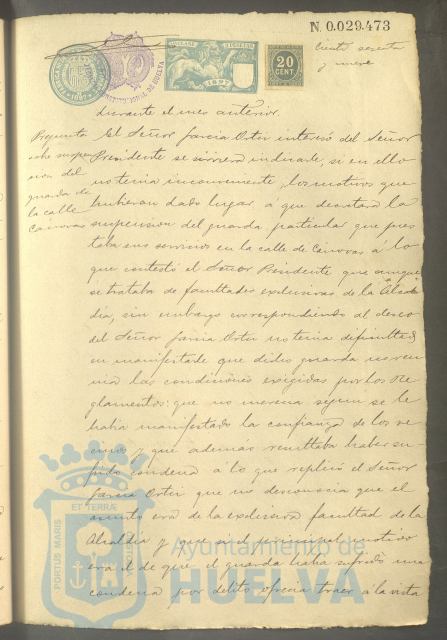 N. 0.029.473
ciento sesenta
y nueve
20
CENT.
1897
durante el mes anterior.
Pregunta
sobre suspen
sion del
guarda de
la calle
Cánovas
El Señor Garcia Ortiz interesó del Señor
Presidente se sirviera indicarle, si en ello
no tenia inconveniente, los motivos que
hubieran dado lugar á que decretara la
suspension del guarda particular que pres
taba sus servicios en la calle de Cánovas á lo
que contestó el Señor Presidente que aunque
se trataba de facultades exclusivas de la Alcal
dia, sin embargo correspondiendo al deseo
del Señor Garcia Ortiz no tenia dificultad
en manifestarle que dicho guarda no reu
nia las condiciones exigidas por los Re
glamentos: que no merecia segun se le
habia manifestado la confianza de los ve
cinos y que además resultaba haber su-
frido condena á lo que replicó el Señor
Garcia Ortiz que no desconocia que el
asunto era de la exclusiva facultad de la
Alcaldia y que si el principal motivo
era el de que el guarda habia sufrido una
condena por delito, ofrecia traer á la vista
PORTUS MARIS
ET TERRÆ
CUSTODIA
Ayuntamiento de
HUELVA